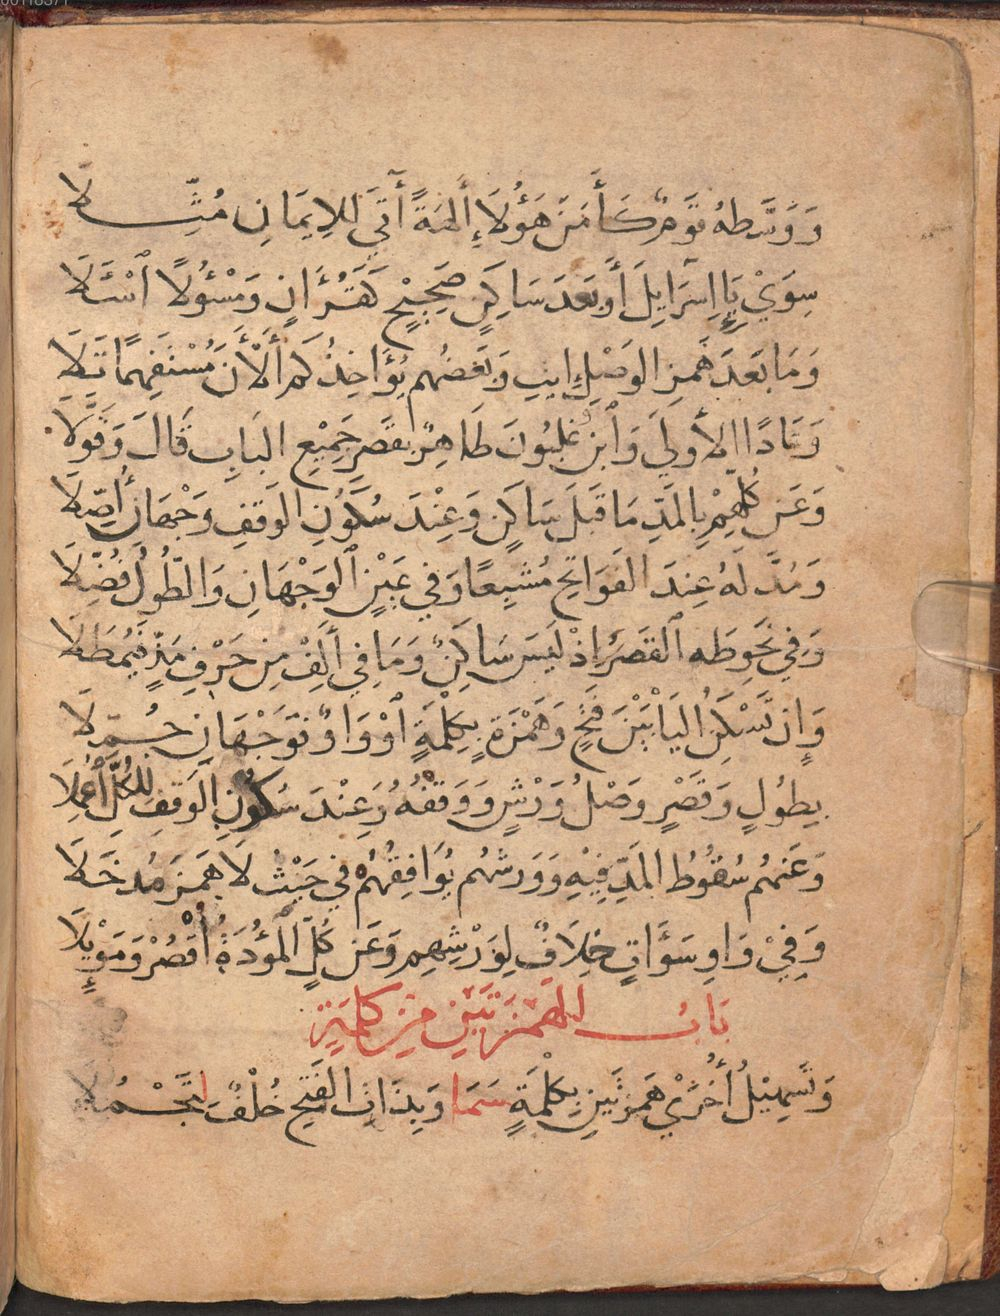 وَوَسَّطَهُ قَوْمٌ كَآمَنَ هَؤُلَاءِ آلِهَةً آتَى لِلْإِيمَانِ مُثِّلَا
سِوَىْ يَاءِ إِسْرَآءِيلَ أَوْ بَعْدَ سَاكِنٍ صَحِيْحٍ كَقُرْءَانٍ وَمَسْئُولًا ٱسْئَلَا
وَمَا بَعْدَ هَمْزِ الوَصْلِ إِيتِ وَبَعْضُهُم يُؤَاخِذُكُم آلْآنَ مُسْتَفْهِمًا تَلَا
وَعَادًا الأُولَى وَٱبْنُ غَلْبُونَ طَاهِرٌ بِقَصْرِ جَمِيْعِ البَابِ قَالَ وَقَوَّلَا
وَعَن كُلِّهِمْ بِالمَدِّ مَا قَبْلَ سَاكِنٍ وَعِنْدَ سُكُونِ الوَقْفِ وَجْهَانِ أُصِّلَا
وَمُدَّ لَهُ عِنْدَ الفَوَاتِحِ مُشْبِعًا وَفِي عَيْنٍ ٱلوَجْهَانِ وَالطُّولُ فُضِّلَا
وَفِي نَحْوِ طه ٱلقَصْرُ إِذْ لَيْسَ سَاكِنٌ وَمَا فِي أَلِفْ مِن حَرْفِ مَدٍّ فَيُمْطَلَا
وَإِن تَسْكُنِ اليَا بَيْنَ فَتْحٍ وَهَمْزَةٍ بِكِلْمَةٍ أَوْ وَاوٌ فَوَجْهَانِ جُمِّلَا
بِطُولٍ وَقَصْرٍ وَصْلُ وَرْشٍ وَوَقْفُهُ وَعِنْدَ سُكُونِ الوَقْفِ لِلكُلِّ أُعْمِلَا
وَعَنْهُم سُقُوطُ المَدِّ فِيْهِ وَوَرْشُهُم يُوَافِقُهُمْ فِي حَيْثُ لَا هَمْزَ مُدْخَلَا
وَفِيْ وَاوِ سَوْءَاتٍ خِلَافٌ لِوَرْشِهِم وَعَن كُلٍّ المَوْءُدَةُ أُقْصُرْ وَمَوْئِلَا
بَابُ الهَمْزَتَيْنِ مِن كَلِمَةٍ
وَتَسْهِيْلُ أُخْرَىْ هَمْزَتَيْنِ بِكِلْمَةٍ سَمَا وَبِذَاتِ الفَتْحِ خُلْفٌ لِتَجْمُلَا